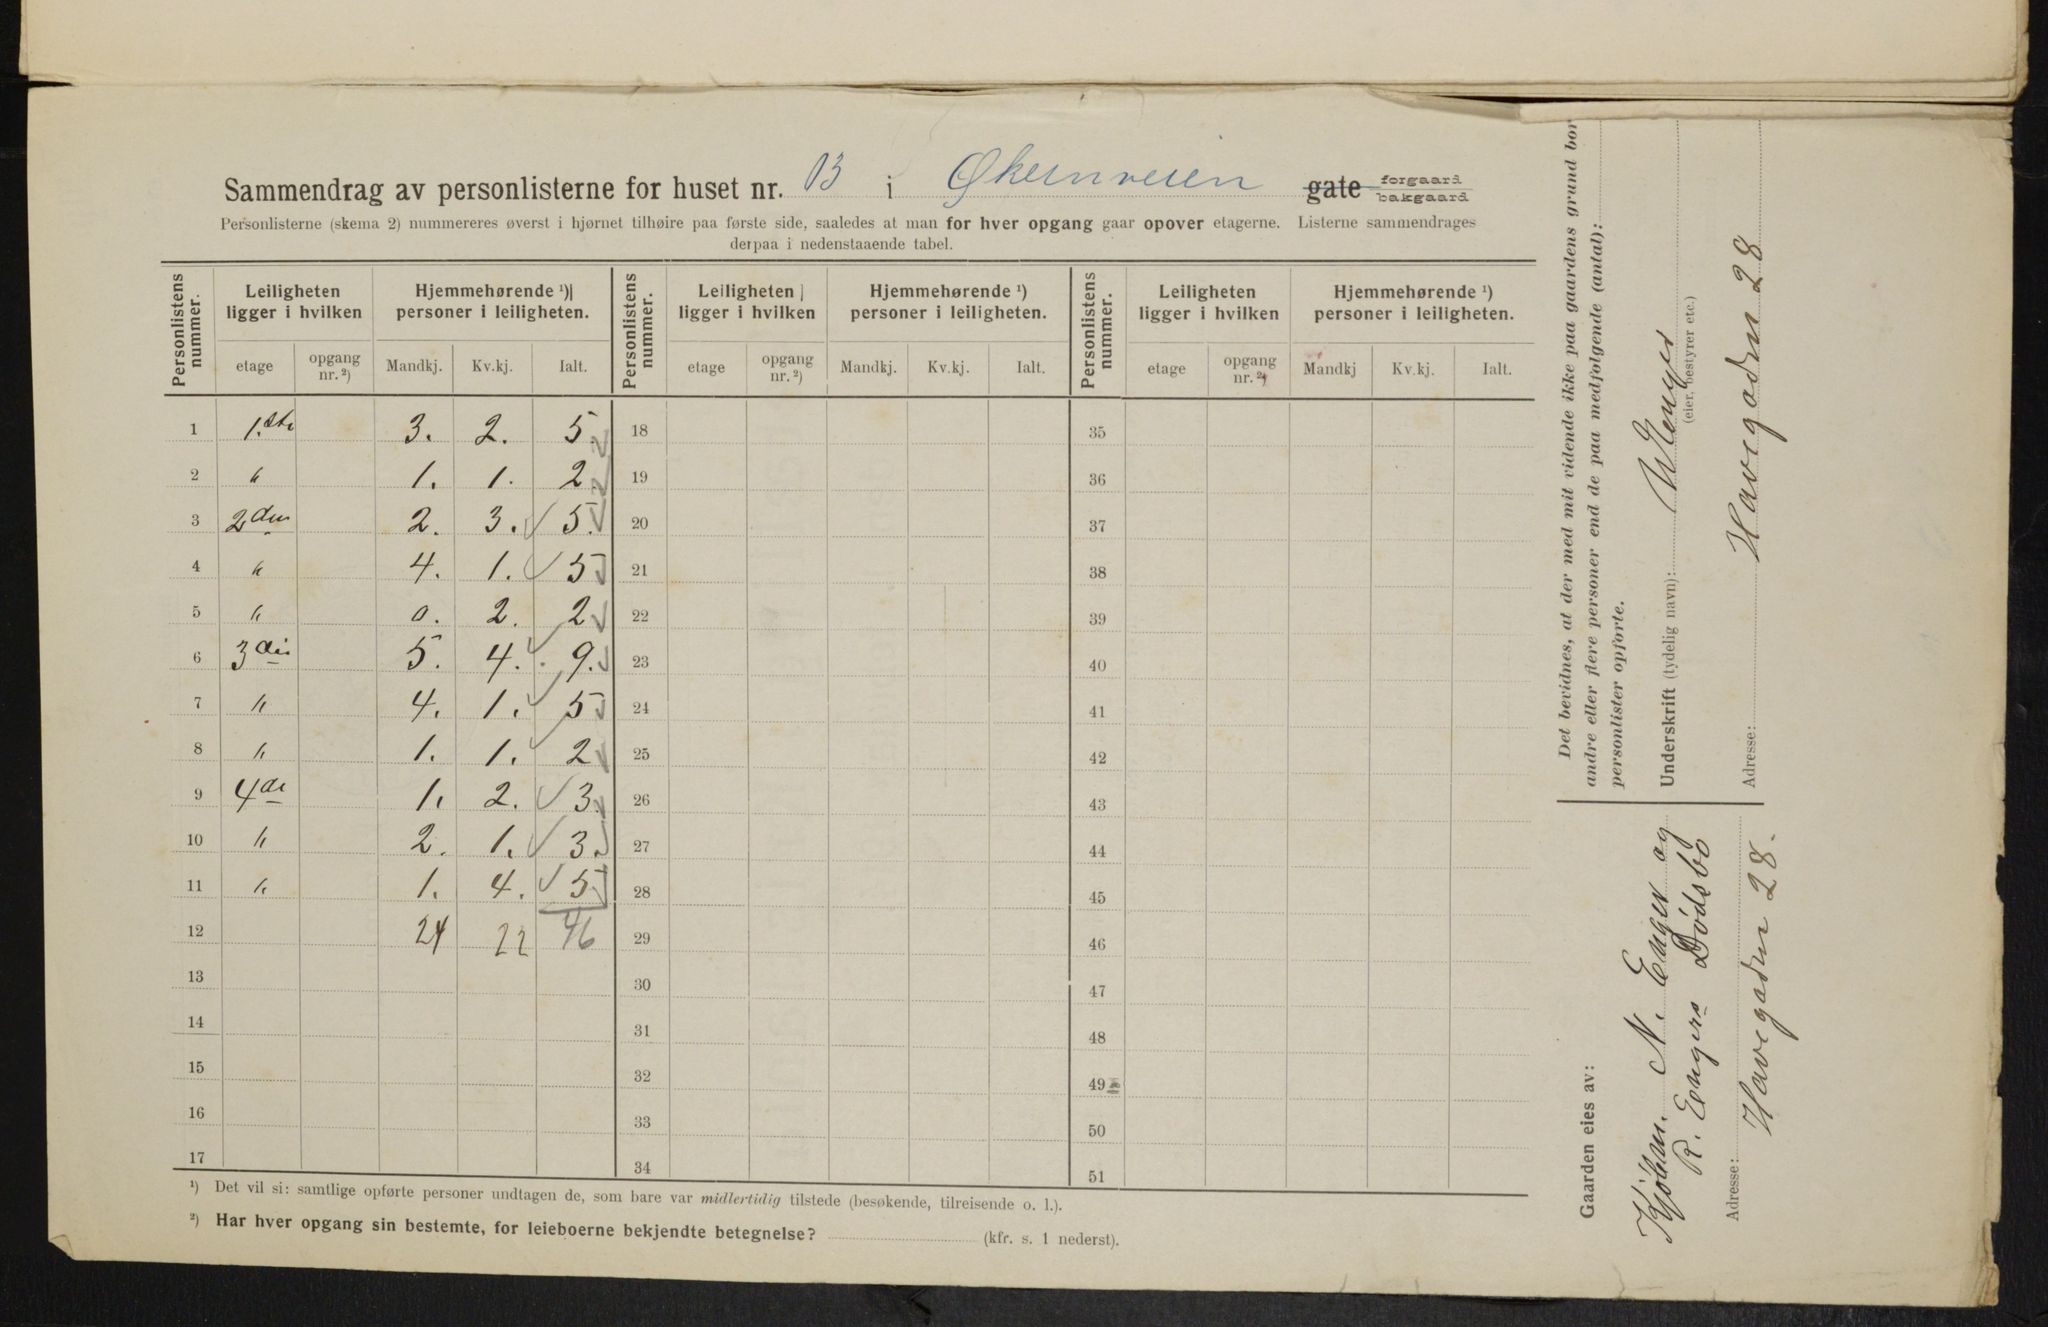 Sammendrag av personlisterne for huset nr. 13 i Økernveien gate forgaard bakgaard
Personlisterne (skema 2) nummereres øverst i hjørnet tilhøire paa første side, saaledes at man for hver opgang gaar opover etagerne. Listerne sammendrages
derpaa i nedenstaaende tabel.
Personlistens nummer. Leiligheten ligger i hvilken Hjemmehørende ¹) personer i leiligheten. Personlistens nummer. Leiligheten ligger i hvilken Hjemmehørende ¹) personer i leiligheten. Personlistens nummer. Leiligheten ligger i hvilken Hjemmehørende ¹) personer i leiligheten.
etage opgang nr. ²) Mandkj. Kv.kj. Ialt. etage opgang nr. ²) Mandkj. Kv.kj. Ialt. etage opgang nr. ²) Mandkj Kv.kj. Ialt.
1 1.ste 3. 2. 5. 18 35
2 " 1. 1. 2 19 36
3 2den 2. 3. 5. 20 37
4 " 4. 1. 5 21 38
5 " 0. 2. 2 22 39
6 3die 5. 4. 9. 23 40
7 " 4. 1. 5 24 41
8 " 1. 1. 2 25 42
9 4de 1. 2. 3. 26 43
10 " 2. 1. 3. 27 44
11 " 1. 4. 5 28 45
12 24 22 46 29 46
13 30 47
14 31 48
15 32 49
16 33 50
17 34 51
¹) Det vil si: samtlige opførte personer undtagen de, som bare var midlertidig tilstede (besøkende, tilreisende o. l.).
²) Har hver opgang sin bestemte, for leieboerne bekjendte betegnelse? (kfr. s. 1 nederst).
Det bevidnes, at der med mit vidende ikke paa gaardens grund bor
andre eller flere personer end de paa medfølgende (antal):
personlister opførte.
Underskrift (tydelig navn): N Enger
(eier, bestyrer etc.)
Adresse: Havegaden 28
Gaarden eies av:
Kjøbm. N. Enger og
R. Engers Dødsbo
Adresse: Havegaden 28.